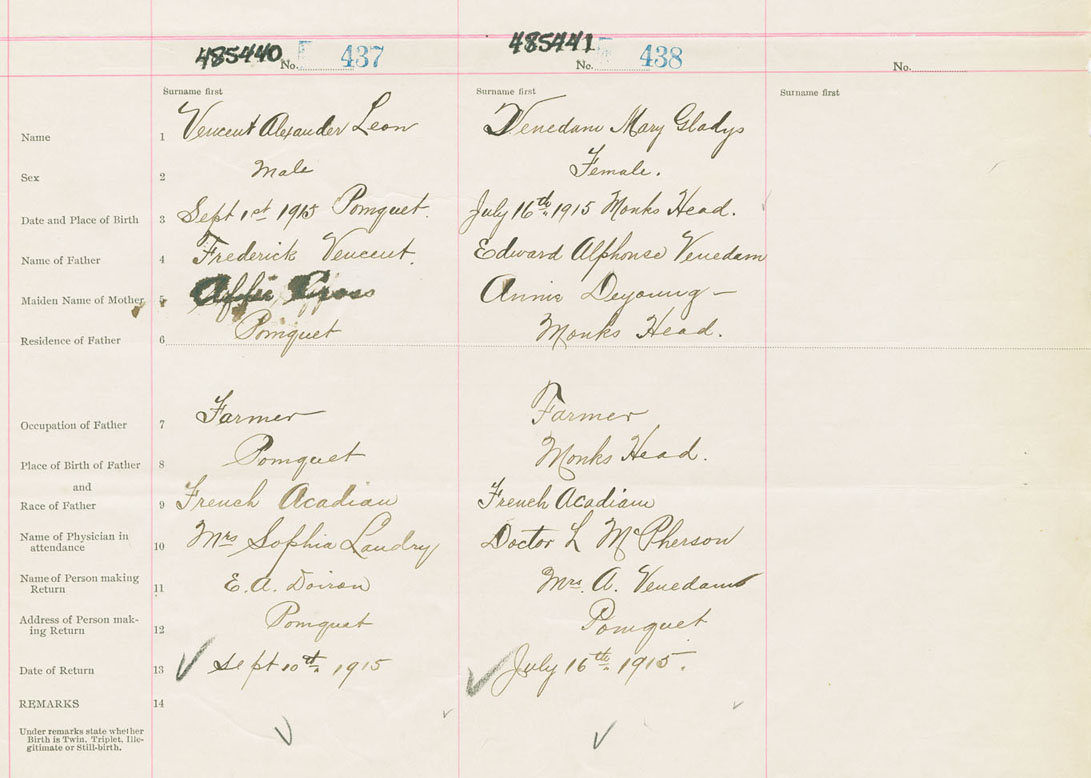 485440 No. 437 485441 No. 438 No.
Surname first Surname first Surname first
Name 1 Vencent Alexander Leon Venedam Mary Gladys
Sex 2 Male Female.
Date and Place of Birth 3 Sept 1st 1915 Pomquet. July 16th 1915 Monks Head.
Name of Father 4 Frederick Vencent. Edward Alphonse Venedam
Maiden Name of Mother 5 Annie Deyoung -
Residence of Father 6 Pomquet Monks Head.
Occupation of Father 7 Farmer Farmer
Place of Birth of Father 8 Pomquet Monks Head.
and
Race of Father 9 French Acadian French Acadian
Name of Physician in
attendance 10 Mrs Sophia Landry Doctor L McPherson
Name of Person making
Return 11 E. A. Doiron Mrs. A. Venedam
Address of Person mak-
ing Return 12 Pomquet Pomquet
Date of Return 13 Sept 10th 1915 July 16th 1915.
REMARKS 14
Under remarks state whether
Birth is Twin, Triplet, Ille-
gitimate or Still-birth.